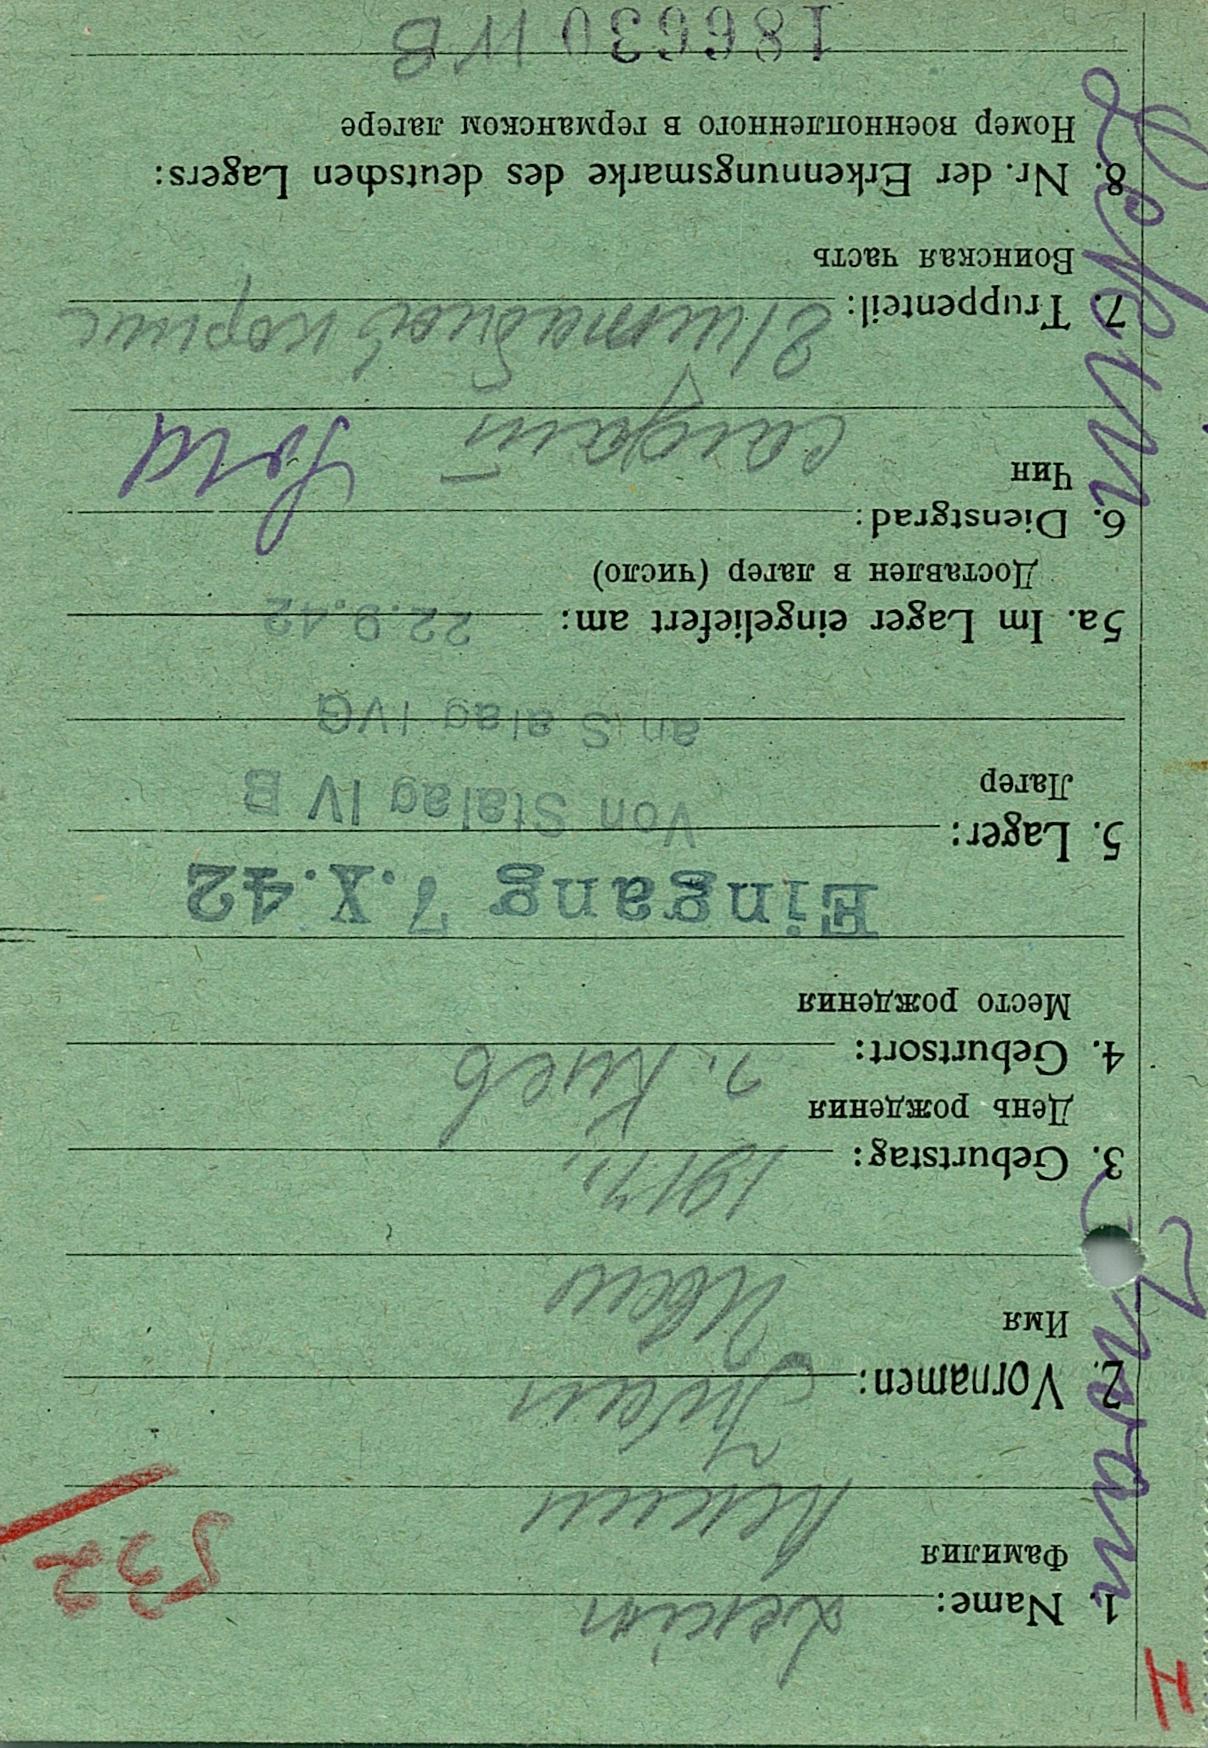 H
1. Name: Lekin
Фамилия
532
Лекин
2. Vornamen: Iwan
Имя
Иван
3. Geburtstag: 1917,
День рождения
4. Geburtsort: г. Киев
Место рождения
Eingang 7.X.42
5. Lager: Von Stalag IV B
Лагер
an Stalag IVG
5a. Im Lager eingeliefert am: 22.9.42
Доставлен в лагер (число)
6. Dienstgrad: Sold
Чин
солдат
7. Truppenteil: 21 штабной
Воинская часть
8. Nr. der Erkennungsmarke des deutschen Lagers:
Номер военнопленного в германском лагере
186630 IV B
Lekin Iwan